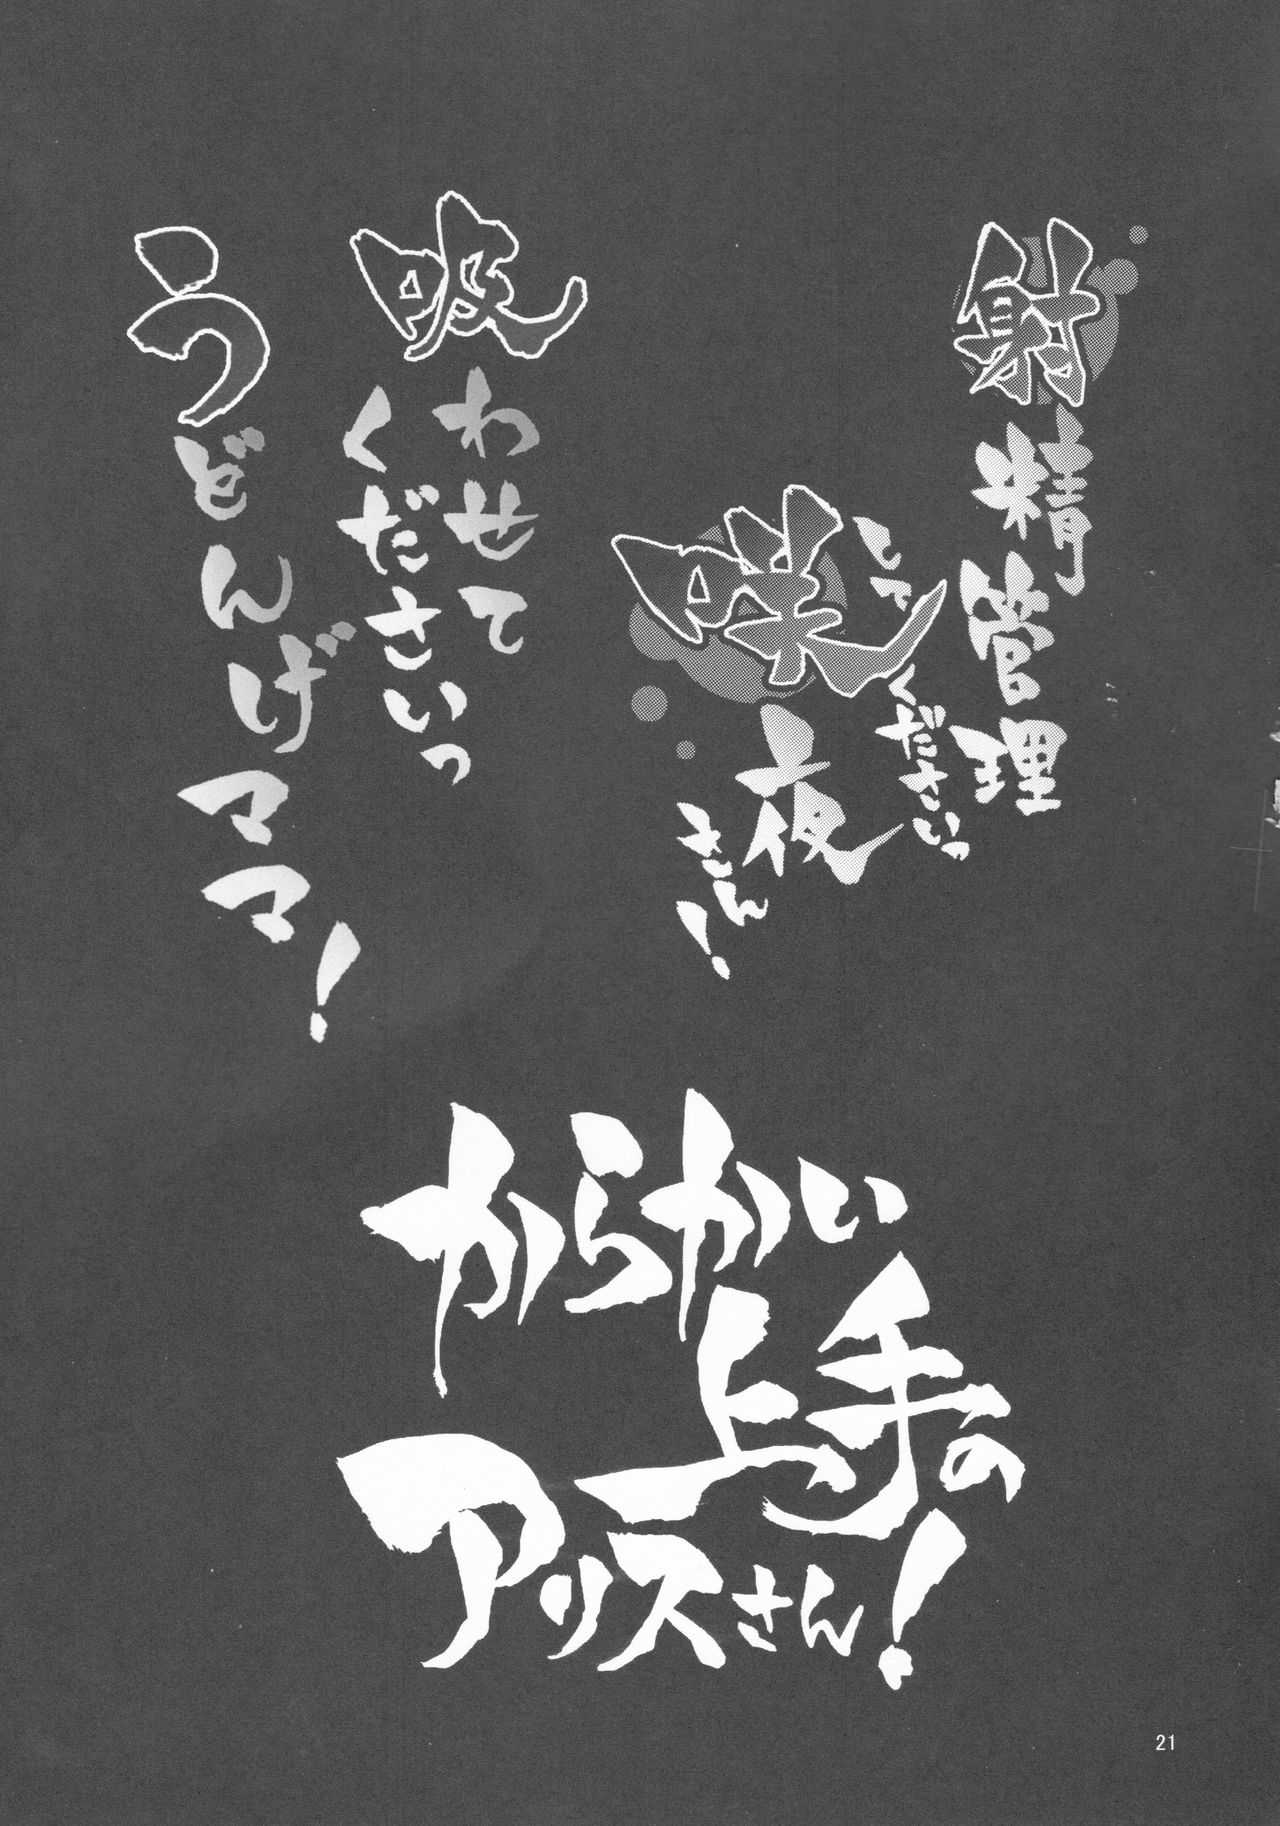 射精管理
してくださいっ
咲夜
さん！
吸わせて
くださいっ
うどんげママ！
からかい
上手の
アリスさん！
21